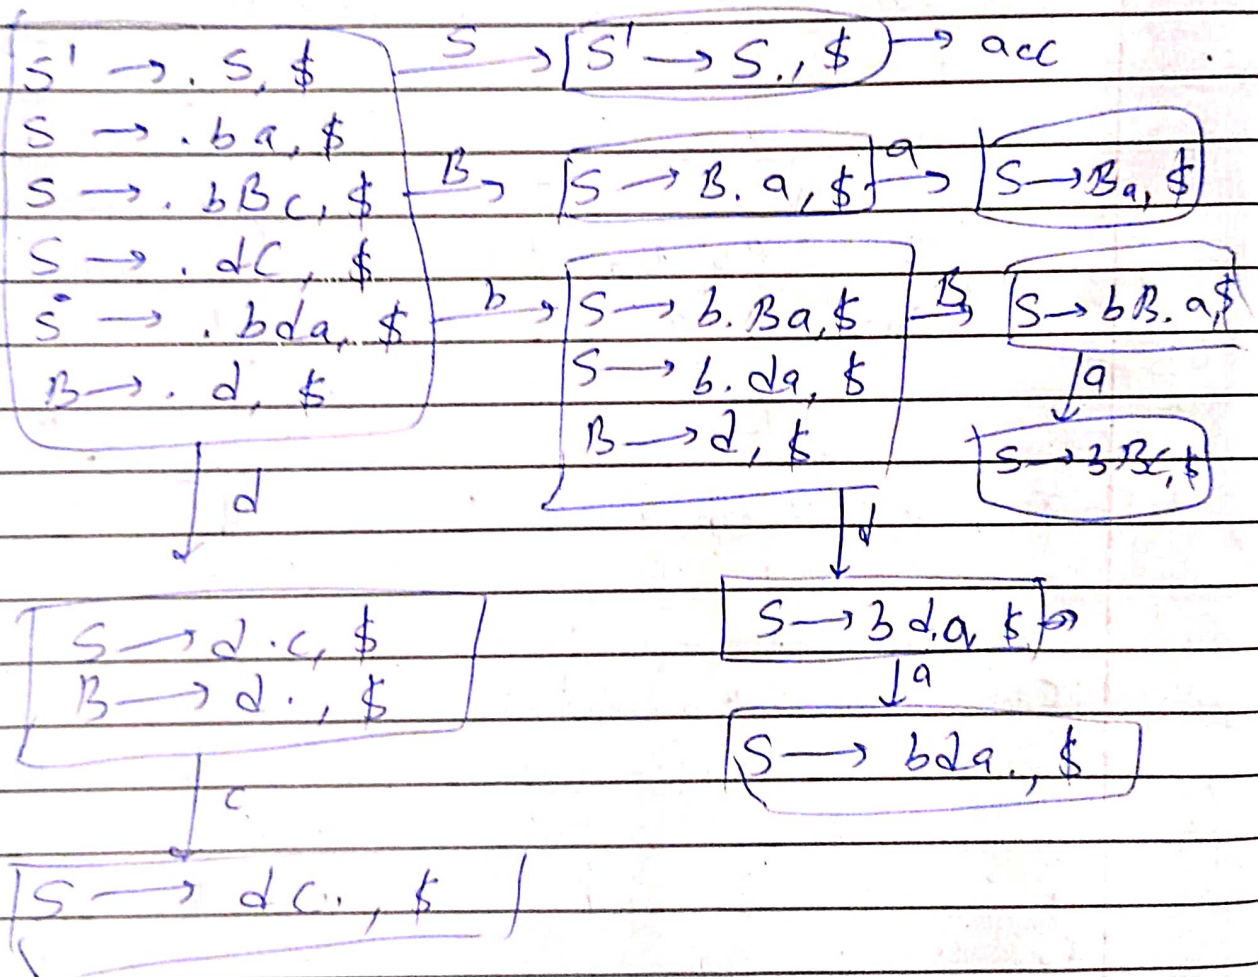 S' → . S, $
S → . ba, $
S → . bBc, $
S → . dC, $
S → . bda, $
B → . d, $
S
S' → S., $
→ acc
B
S → B. a, $
a
S → Ba, $
b
S → b. Ba, $
S → b. da, $
B → d, $
B
S → bB. a, $
a
S → bBc, $
d
S → d .c, $
B → d ., $
c
S → dc., $
d
S → bd.a, $
a
S → bda., $